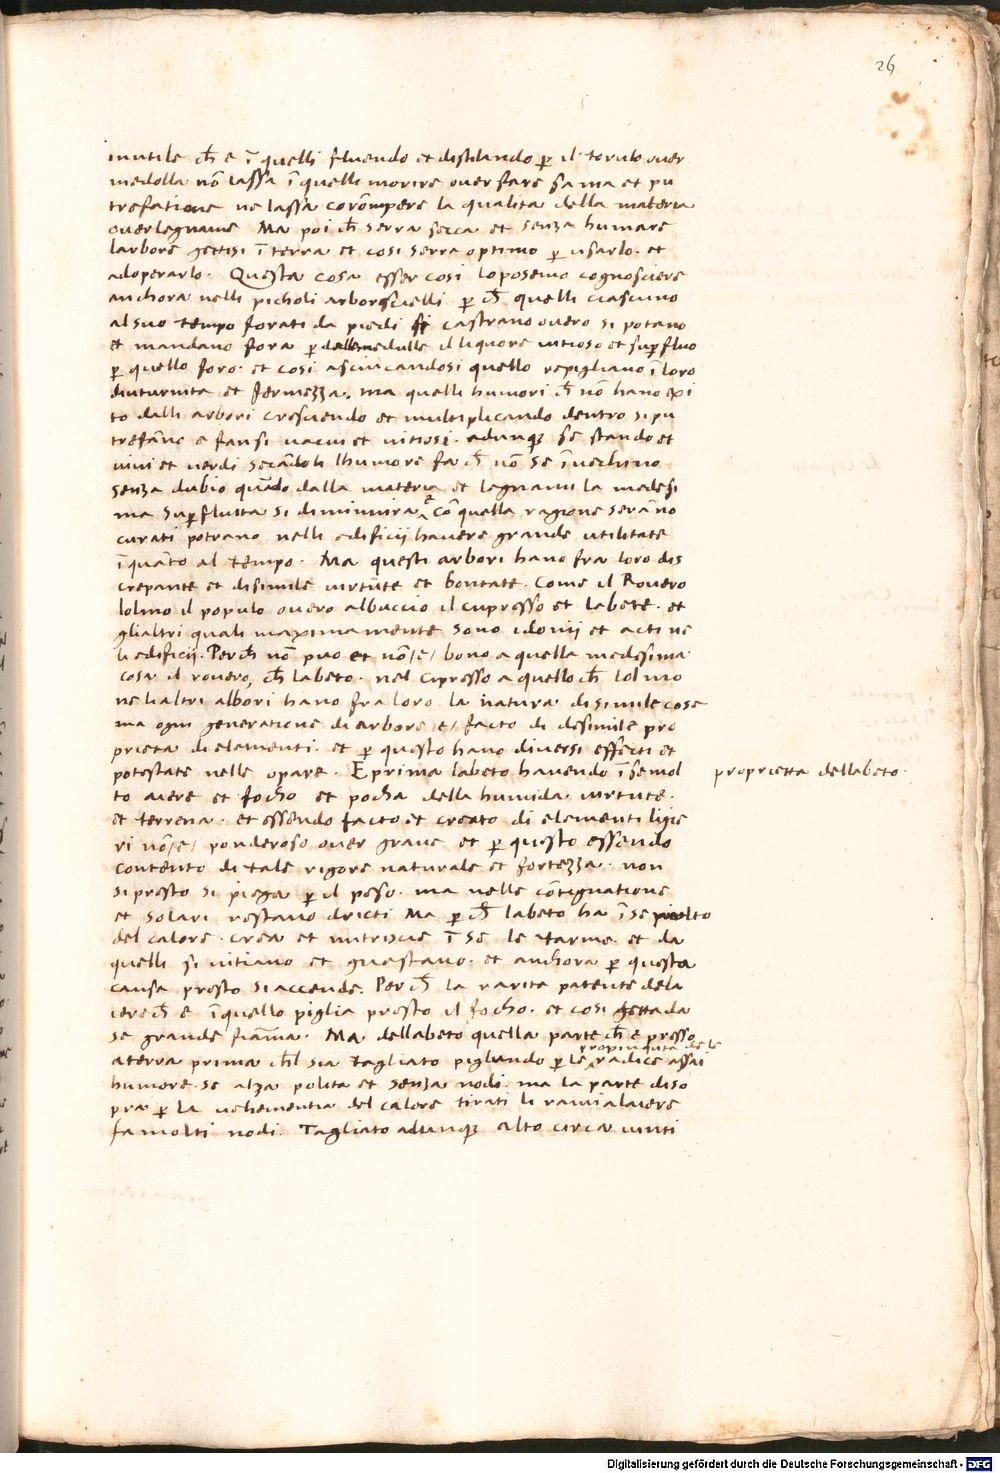 26
inutile ch̃ e ĩ quelli fluendo et distilando p̱ il torulo over
medolla nõ lassa ĩ quelli morire over fare sa ma et pu
trefatione ne lassa corõmpere la qualita della materia
over legname Ma poi ch̃ serra secca et senza humare
larbore gettisi ĩ terra et cosi serra optimo p̱ usarlo. et
adoperarlo. Questa cosa esser cosi lo posemo cognosciere
anchora nelli picholi arborscielli p̱ ch̃ quelli ciascuno
al suo tempo forati da piedi si castrano overo si potano
et mandano fora p̱ dalle medulle il liquore vitioso et sup̱fluo
p̱ quello foro. et cosi asciucandosi quello repigliano ĩ loro
diuturnita et fermezza. ma quelli humori ch̃ nõ hano exi
to dalli arbori cresciendo et multiplicando dentro si pu
trefãno e fansi vacui et vitiosi. adunq3 se stando et
vivi et verdi secãdoli lhumore fa ch̃ nõ se ĩvechino
senza dubio quãdo dalla materia et legnami la medesi
ma sup̱fluita si diminuira e cõ quella ragione serãno
curati potrano nelli edificij havere grande utilitate
ĩ quãto al tempo. Ma questi arbori hano fra loro dis
crepante et disimile virtute et bontate. Come il Rovero
lolmo il populo overo albuccio il cupresso et labete. et
glialtri quali maximamente sono idonij et acti ne
li edificij. Perch̃ nõ puo et nõ /e/ bono a quella medesima
cosa il rovero, ch̃ labeto. nel cipresso a quello ch̃ lolmo
ne li altri albori hano fra loro la natura disimile cose
ma ogni generatione di arbore /e/ facto di desimile pro
prieta di elementi. et p̱ questo hano diversi effecti et
potestate nelle opare. E prima labeto havendo ĩ se mol
to aiere et focho et pocha della humida virtute.
et terrena. et essendo facto et creato di elementi ligie
ri nõ /e/ ponderoso over grave et p̱ questo essendo
contento di tale rigore naturale et fortezza. non
si presto si piega p̱ il peso. ma nelle cõtignatione
et solari restano dricti Ma p̱ ch̃ labeto ha ĩ se molto
del calore. crea et nutriscie ĩ se le tarme. et da
quelli si vitiano et guastano. et anchora p̱ questa
causa presto si accende. Perch̃ la rarita patente dela
iere ch̃ e ĩ quello piglia presto il focho. et cosi getta da
se grande fiãma. Ma dellabeto quella parte ch̃ e presso
a terra prima ch̃l sia tagliato pigliando p̱ le propinquita de le radice assai
humore. se alza polita et senza nodi. ma la parte diso
pra p̱ la vehementia del calore tirati li rami alaiere
fa molti nodi. Tagliato adunq3 alto circa vinti
proprietta dellabeto.
Digitalisierung gefördert durch die Deutsche Forschungsgemeinschaft - DFG